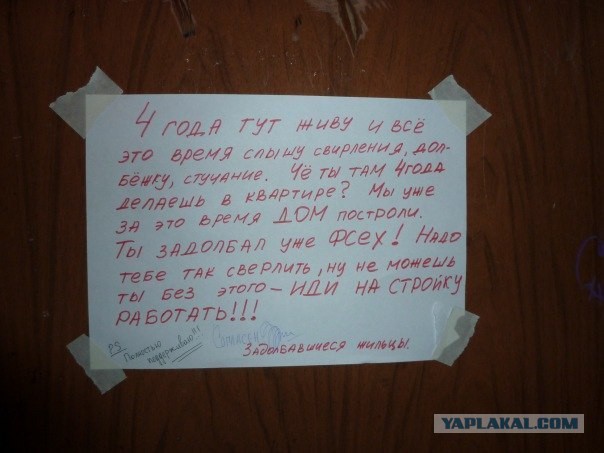 4 ГОДА ТУТ ЖИВУ И ВСЁ
ЭТО ВРЕМЯ СЛЫШУ СВИРЛЕНИЯ, ДОЛ-
БЁЖКУ, СТУЧАНИЕ. ЧЁ ТЫ ТАМ 4 ГОДА
ДЕЛАЕШЬ В КВАРТИРЕ? МЫ УЖЕ
ЗА ЭТО ВРЕМЯ ДОМ ПОСТРОЛИ.
ТЫ ЗАДОЛБАЛ УЖЕ ФСЕХ! НАДО
ТЕБЕ ТАК СВЕРЛИТЬ, НУ НЕ МОЖЕШЬ
ТЫ БЕЗ ЭТОГО – ИДИ НА СТРОЙКУ
РАБОТАТЬ!!!
P.S.
Полностью
поддерживаю!!!
Согласен
ЗАДОЛБАВШИЕСЯ ЖИЛЬЦЫ.
YAPLAKAL.COM